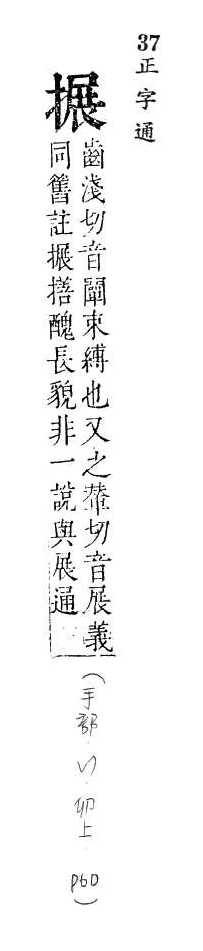 37正字通
搌
齒淺切音闡束縛也又之輦切音展義
同舊註搌㨔醜長貌非一說與展通
(手部.
卯上.
P60)